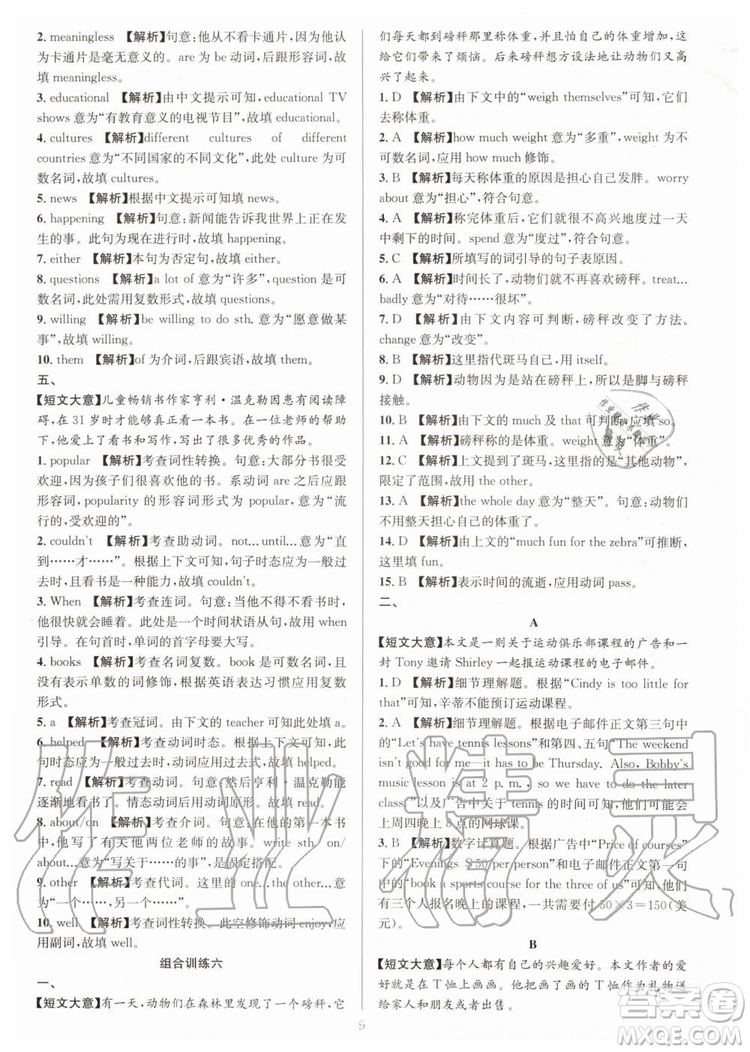 2. meaningless 【解析】句意：他从不看卡通片，他认
为卡通片是毫无意义的。are 为 be 动词，后跟形容词，故
填 meaningless。
3. educational 【解析】由中文提示可知，educational TV
shows 意为“有教育意义的电视节目”，故填 educational。
4. cultures 【解析】different cultures of different
countries 意为“不同国家的不同文化”，此处 culture 为可
数名词，故填 cultures。
5. news 【解析】根据中文提示可知，填 news。
6. happening 【解析】句意：新闻能告诉我世界上正在发
生的事。此句为现在进行时，故填 happening。
7. either 【解析】此句为否定句，故填 either。
8. questions 【解析】a lot of 意为“许多”，后跟可数名词，
此处需用复数形式，故填 questions。
9. willing 【解析】be willing to do sth. 意为“愿意做某
事”，故填 willing。
10. them 【解析】of 为介词，后跟宾语，故填 them。
五、
【短文大意】儿童畅销书作家亨利·温克勒因患有阅读障
碍，在 31 岁时才能够阅读。在一位老师的帮助
下，他爱上了看书和写作，并且写了很多优秀的作品。
1. popular 【解析】考查词性转换。句意：大部分书很受
欢迎，因为孩子们喜欢这些书。系动词 are 之后应跟
形容词，popularity 的形容词形式为 popular，意为“流
行的，受欢迎的”。
2. couldn't 【解析】考查助动词。not…until…意为“直
到……才……”。根据上下文可知，句子时态应为一般过
去时，且此处是一种能力，故填 couldn't。
3. When 【解析】考查连词。句意：当人们不看书时，他
们能够很快就会睡着。这是一个时间状语从句，故用
when 引导。句首，单词的首字母要大写。
4. books 【解析】考查名词复数。book 是可数名词，没有
表示单数的词修饰，又根据上下文可知此处应填复数
形式。
5. a 【解析】考查冠词。由下文的 teacher 可知填 a。
6. helped 【解析】考查动词时态，故填 helped。
7. read 【解析】考查动词原形。然后亨利·温克勒能
逐渐地看书了。情态动词后用动词原形，故填 read。
8. about/on 【解析】考查介词。句意：在他的第一本书
中，他写了他与他的两位老师的故事。write sth on/
about 意为“写关于……”。
9. other 【解析】考查代词。one…the other…意为“一
个……另一个……”。
10. well 【解析】考查词性转换。此空修饰动词 enjoy，应
用副词，故填 well。
组合训练六
一、
【短文大意】有一天，动物们在森林里发现了一个磅秤，它
们发现自己可以称体重，但是体重的增加
给它们带来了烦恼。后来磅秤想方设法地让动物们又高
兴了起来。
1. D 【解析】由下文中的“weigh themselves”可知，它们
去称体重。
2. A 【解析】how much weight 意为“多重”，weight 为不
可数名词，应用 how much 修饰。
3. C 【解析】每天称体重的原因是担心自己发胖。worry
about 意为“担心”，符合句意。
4. A 【解析】称完体重后，它们会高兴地度过一天
中剩下的时间。spend 意为“度过”，符合句意。
5. C 【解析】所填写的词引导的句子表原因。
6. A 【解析】时间长了，动物们不再喜欢磅秤。treat…
badly 意为“对待……很坏”。
7. D 【解析】由下文内容可知，磅秤改变了动物们。
change 意为“改变”。
8. B 【解析】这里指代斑马自己，用 itself。
9. D 【解析】动物因为站在磅秤上，所以脚与磅秤
接触。
10. B 【解析】由下文的 much 及 that 可判断，应填 so。
11. D 【解析】磅秤称的是体重。weight 意为“体重”。
12. C 【解析】上文提到了斑马，此处是指“其他动物”，
限定了范围，用 the other。
13. A 【解析】the whole day 意为“整天”。句意：动物们
不用整天担心自己的体重了。
14. D 【解析】由下文的“much fun for the zebra”可推断，
这里应填 fun。
15. B 【解析】表示时间的流逝，应用动词 pass。
二、
A
【短文大意】本文是一则关于运动俱乐部课程的广告和一
封 Tony 邀请 Shirley 一起报运动课程的电子邮件。
1. D 【解析】细节理解题。根据“Cindy is too little for
that”可知，辛蒂不能预订运动课程。
2. A 【解析】细节理解题。根据电子邮件正文第三句中
的“Let's have tennis lessons”和第四、五句“The weekend
isn't good for me—it has to be Thursday. Also, Bobby's
music lesson is at 2 p. m., so we have to do the later
class”以及广告中关于 tennis 的时间，可知他们能
上周四晚上 8 点的网球课。
3. B 【解析】数字计算题。根据广告中“Price of courses”
下的“Evenings $50/per person”和正文中
“book a sports course for the three of us”可知，
有三个人报名晚上的课，要付 50×3＝150(美
元)。
B
【短文大意】每个人都有自己的兴趣爱好。本文作者的爱
好就是在 T 恤上画画。他把自己画了画的 T 恤作为礼物送
给家人和朋友或者出售。
9
作业精灵
答案圈
MXQE.COM